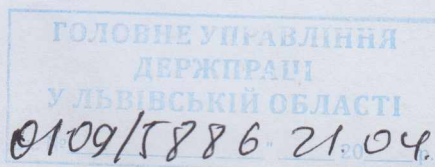 ГОЛОВНЕ УПРАВЛІННЯ
ДЕРЖПРАЦІ
У ЛЬВІВСЬКІЙ ОБЛАСТІ
0109/5886 21.04
№ " 20 р.